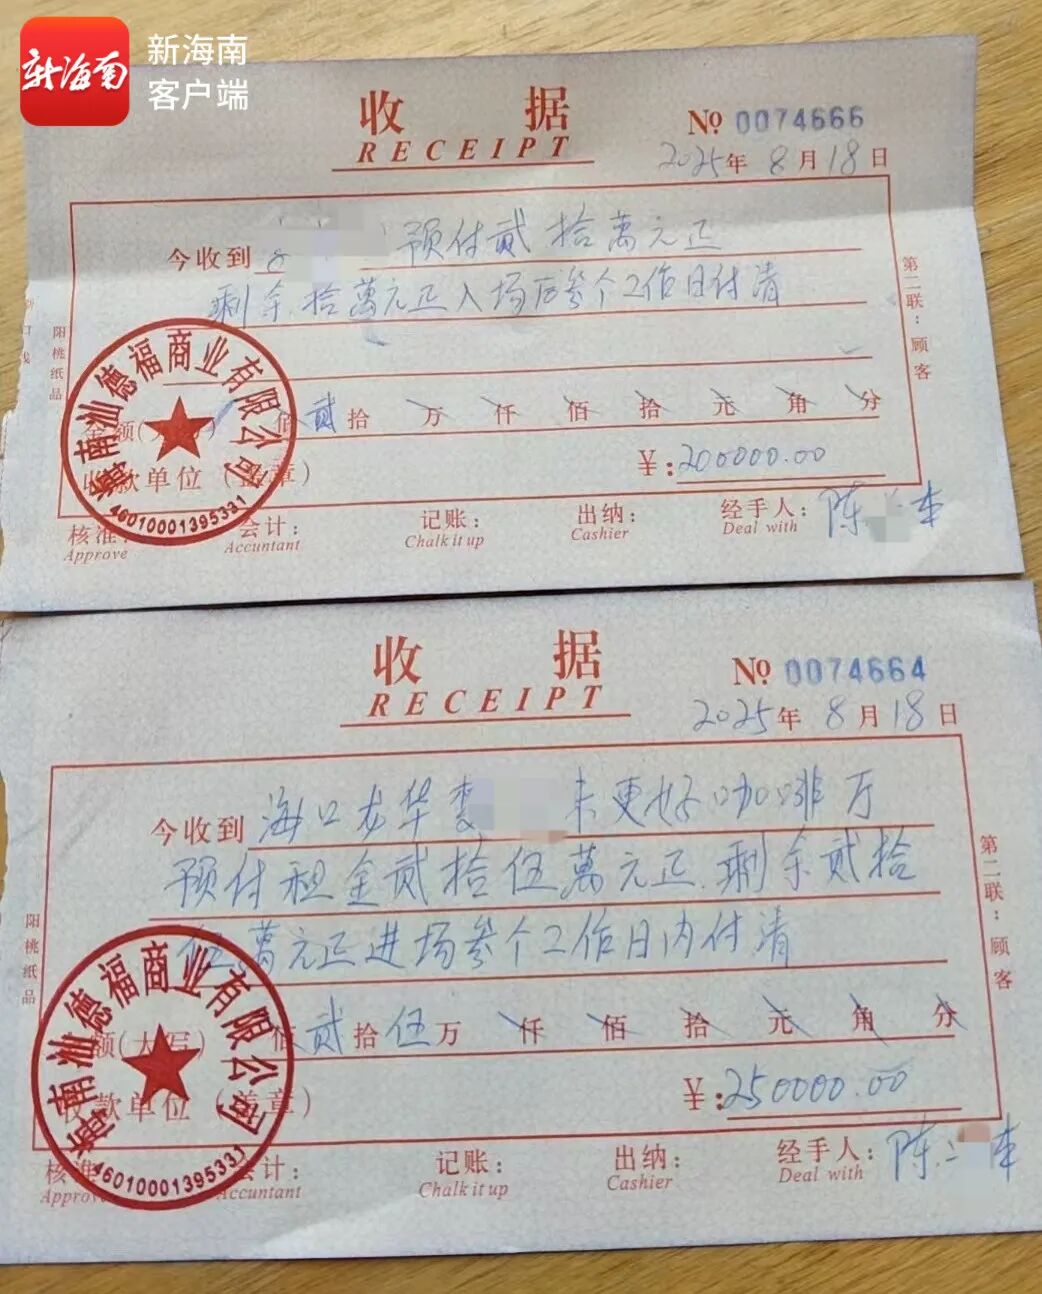 新海南
新海南
客户端
收 据
RECEIPT
№ 0074666
2025年 8 月 18 日
今收到 预付贰拾萬元正
剩余拾萬元正入场后叁个工作日付清
第二联：顾客
阳桃纸品
佰 贰 拾 万 仟 佰 拾 元 角 分
¥：200000.00
款单位（盖章）
海南汕德福商业有限公司
4601000139533
核准： 会计： 记账： 出纳： 经手人：陈
Approve Accountant Chalk it up Cashier Deal with
收 据
RECEIPT
№ 0074664
2025年 8 月 18 日
今收到 海口龙华 未更好咖啡厅
预付租金贰拾伍萬元正.剩余贰拾
伍萬元正进场叁个工作日内付清
第二联：顾客
阳桃纸品
额(大写) 佰 贰 拾 伍 万 仟 佰 拾 元 角 分
¥：250000.00
收款单位（盖章）
海南汕德福商业有限公司
4601000139533
核准 会计： 记账： 出纳： 经手人：陈
Approve Accountant Chalk it up Cashier Deal with